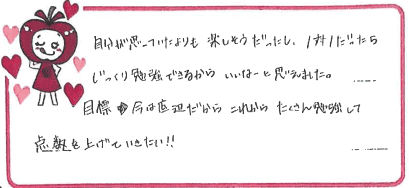 自分が思っていたよりも 楽しそうだったし、1対1だったら
じっくり勉強できるから いいなーと思えました。
目標 今は直近だから これから たくさん勉強して
点数を上げていきたい!!